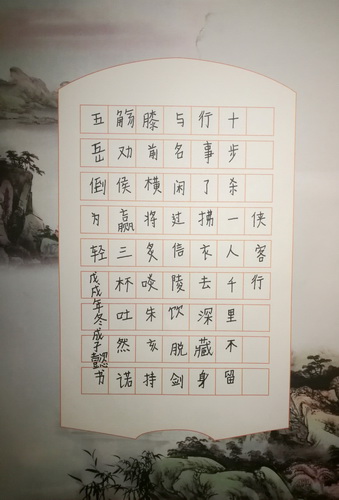 侠客行
十步杀一人千里不留
行事了拂衣去深藏身
与名闲过信陵饮脱剑
膝前横将炙啖朱亥持
觞劝侯嬴三杯吐然诺
五岳倒为轻戊戌年冬成子懿书